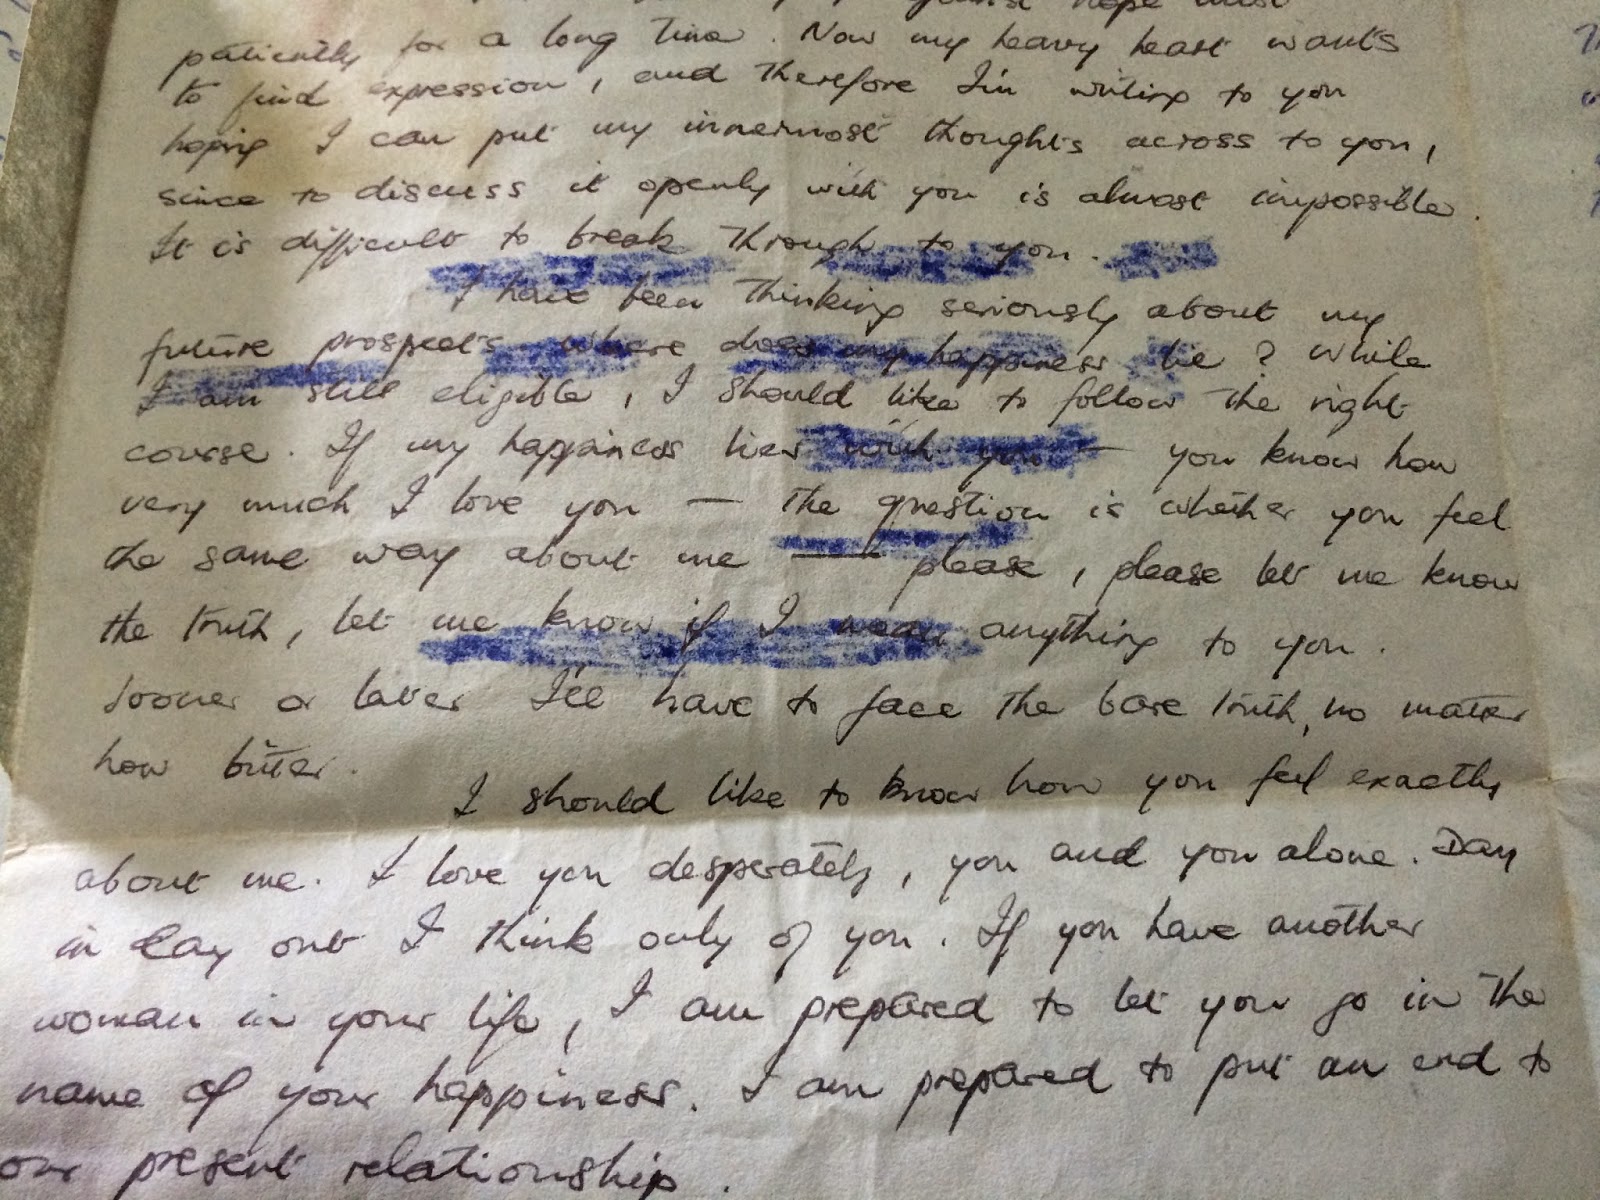 hope
patiently for a long time. Now my heavy heart wants
to find expression, and therefore I'm writing to you
hoping I can put my innermost thoughts across to you,
since to discuss it openly with you is almost impossible.
It is difficult to break through to you.
I have been thinking seriously about my
future prospects where does my happiness lie? While
I am still eligible, I should like to follow the right
course. If my happiness lies with you — you know how
very much I love you — the question is whether you feel
the same way about me — please, please let me know
the truth, let me know if I mean anything to you.
Sooner or later I'll have to face the bare truth, no matter
how bitter.
I should like to know how you feel exactly
about me. I love you desperately, you and you alone. Day
in day out I think only of you. If you have another
woman in your life, I am prepared to let you go in the
name of your happiness. I am prepared to put an end to
our present relationship.